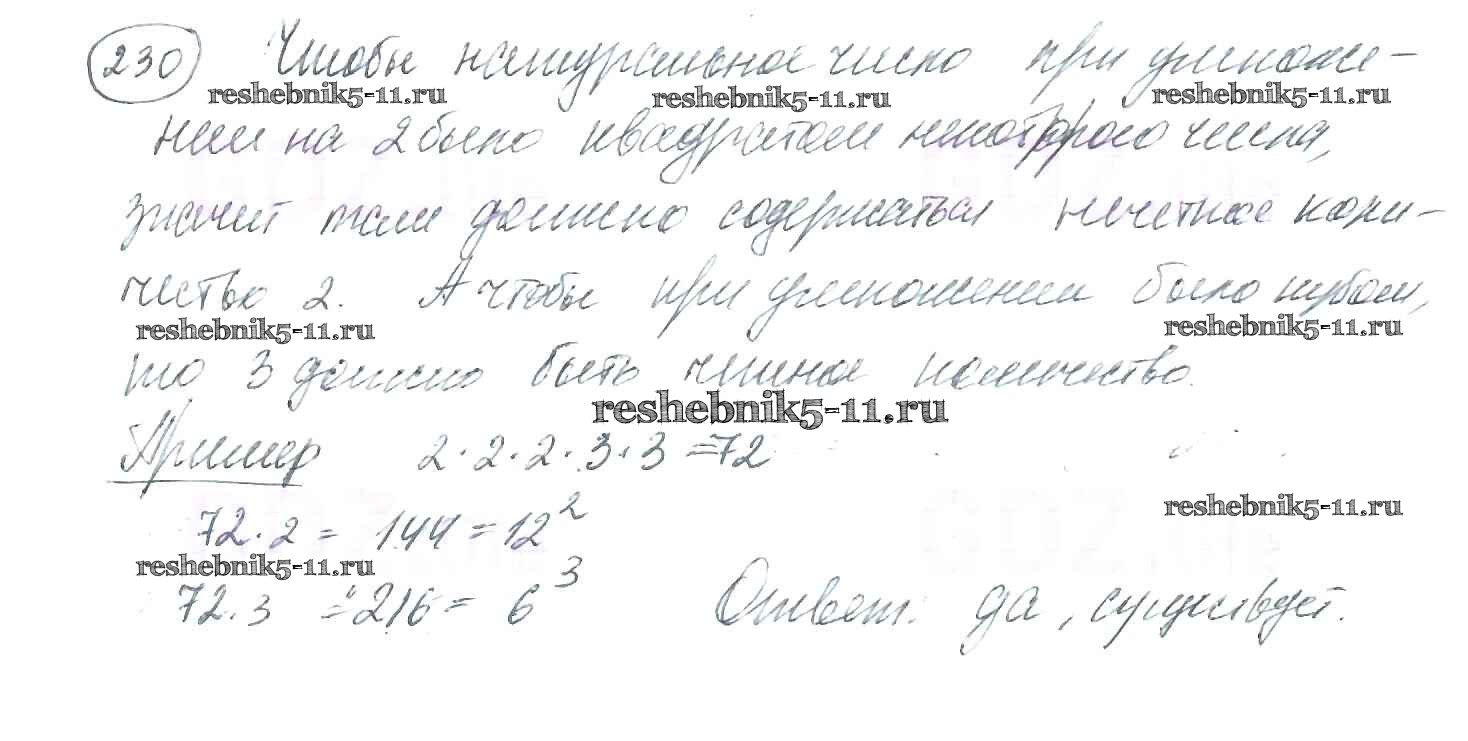 230 Чтобы натуральное число при умноже-
reshebnik5-11.ru reshebnik5-11.ru reshebnik5-11.ru
нии на 2 было квадратом некоторого числа,
значит там должно содержаться нечетное коли-
чество 2. А чтобы при умножении было кубом,
reshebnik5-11.ru reshebnik5-11.ru
то 3 должно быть количество.
reshebnik5-11.ru
Пример 2·2·2·3·3=72
reshebnik5-11.ru
72·2 = 144 = 12²
reshebnik5-11.ru
72·3 = 216 = 6³ Ответ: да, существует.